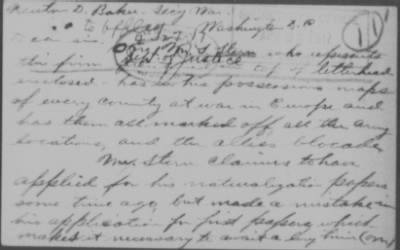 Newton D. Baker. Secy War.
Washington D.C.
Dear sir:
who represents
this firm top of letterhead
enclosed - has in his possession maps
of every country at war in Europe and
has them all marked off, all the army
locations, and the allies blockade
Mr. Stern claims to have
applied for his naturalization papers
some time ago, but made a mistake in
his application for first papers, which
makes it necessary to await a long time (over)